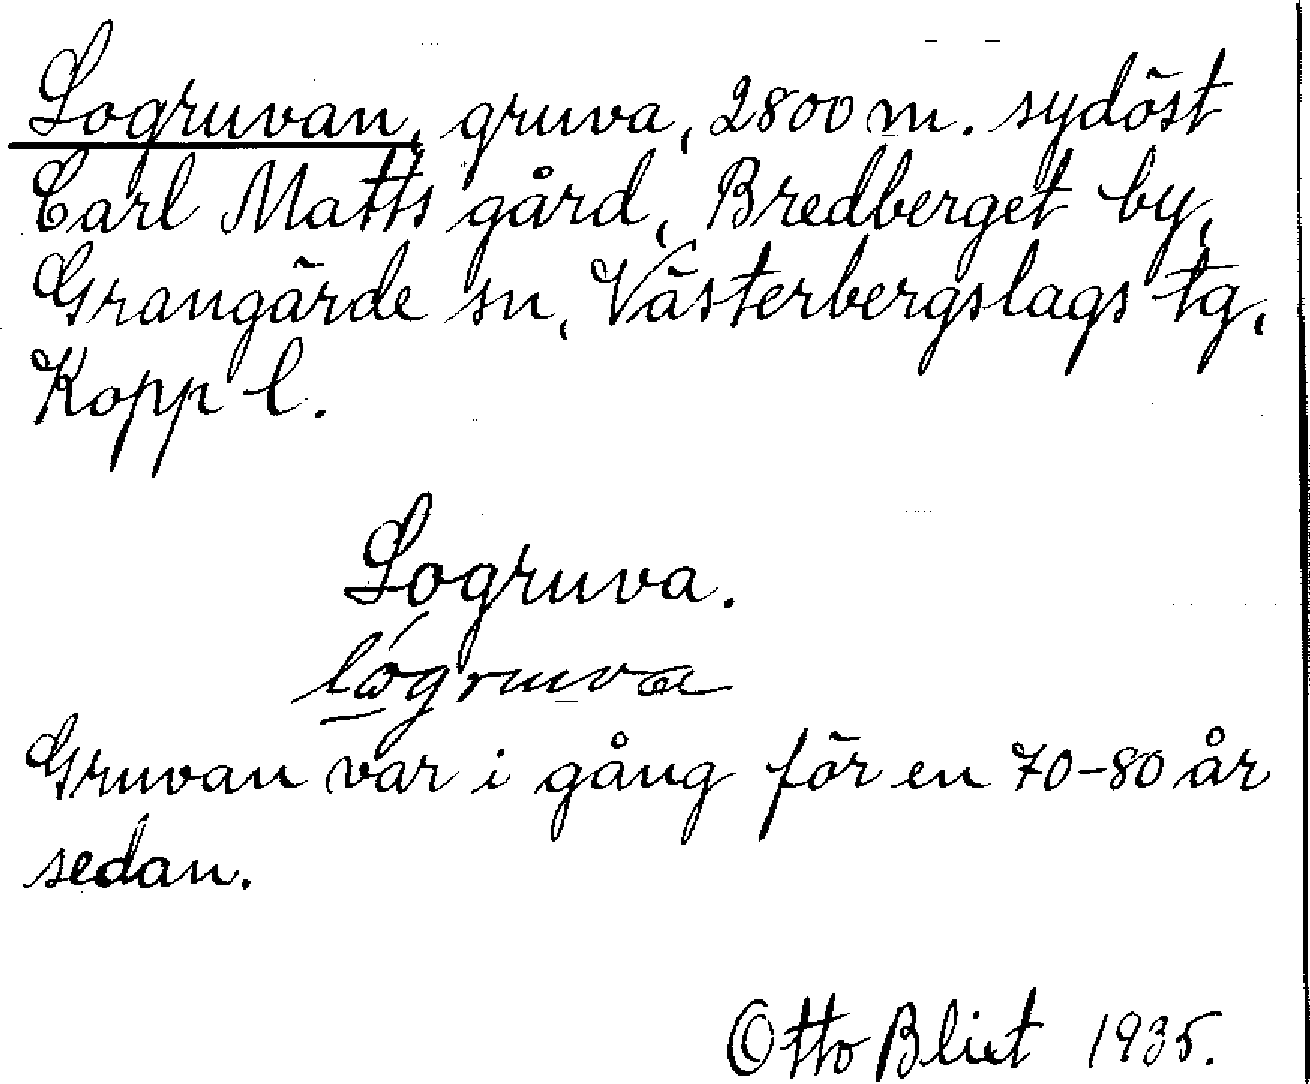 Logruvan, gruva, 2800 m. sydöst
Carl Matts gård, Bredberget by,
Grangärde sn, Västerbergslags tg,
Kopp l.
Logruva.
lógruva
Gruvan var i gång för en 70-80 år
sedan.
Otto Blixt 1935.